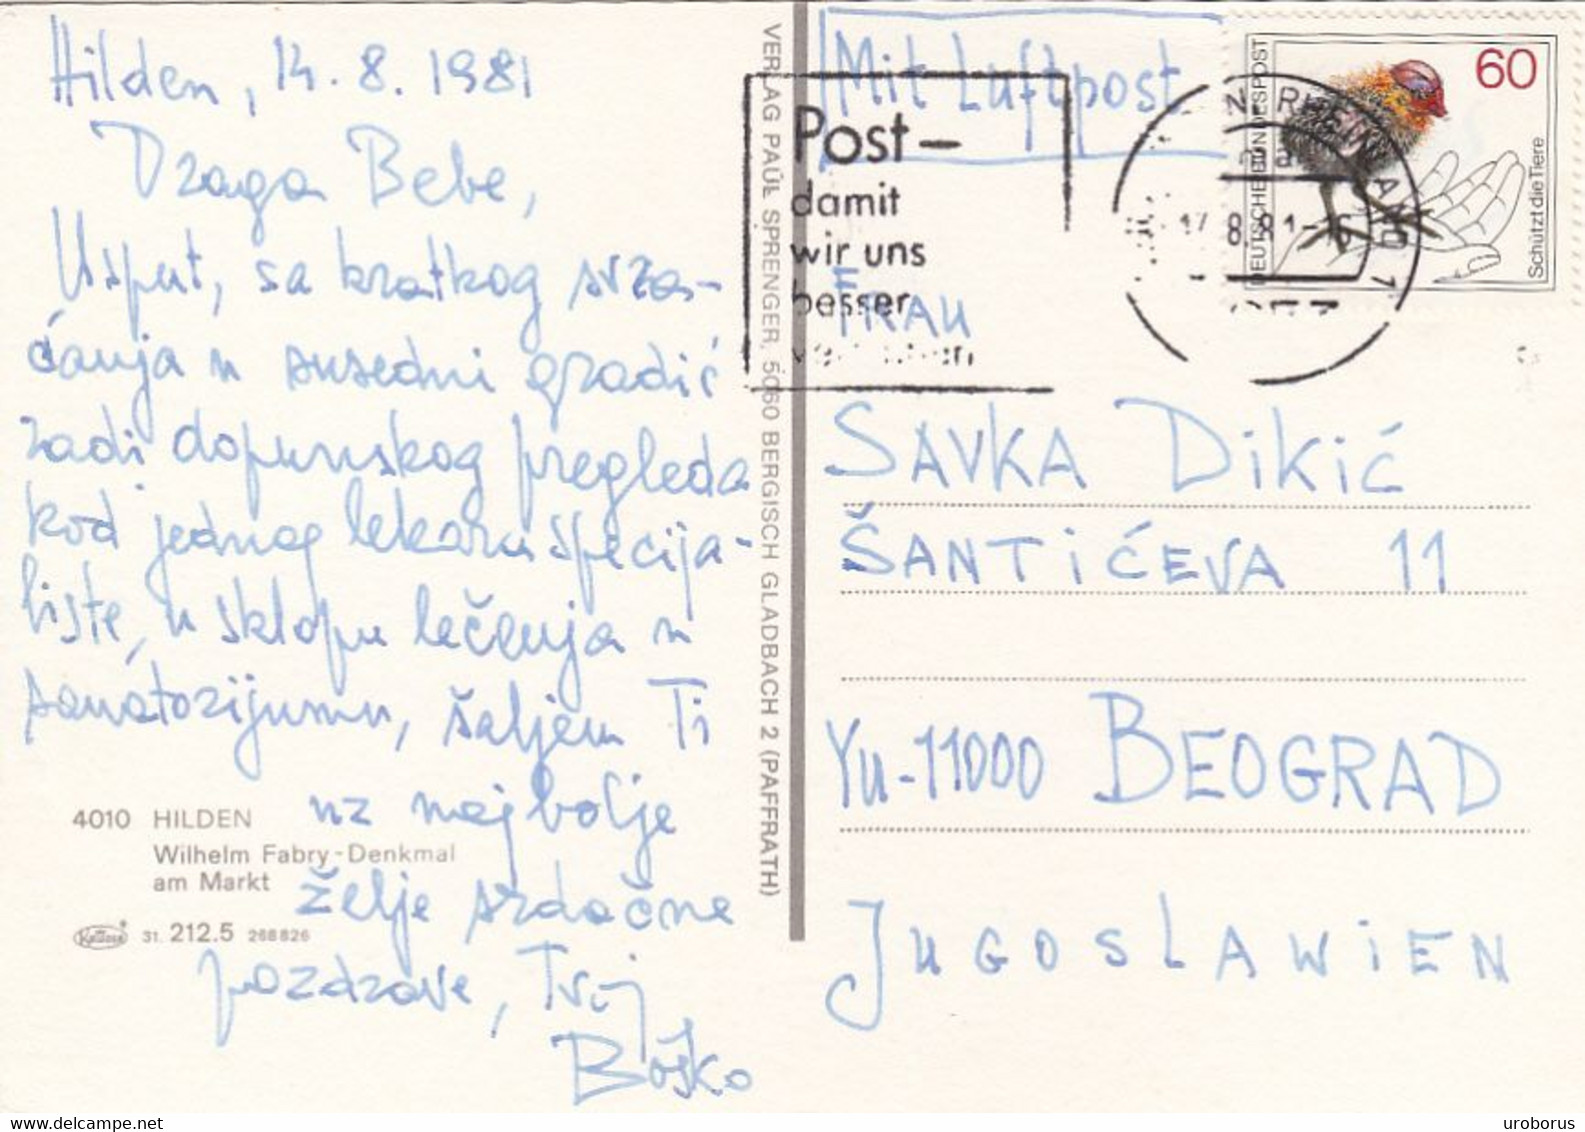 Hilden, 14. 8. 1981
Draga Bebe,
Usput, sa kratkog svra-
ćanja u susedni gradić
radi dopunskog pregleda
kod jednog lekara specija-
liste, u sklopu lečenja u
sanatorijumu, šaljem Ti
uz najbolje
želje srdačne
pozdrave, Tvoj
Boško
4010 HILDEN
Wilhelm Fabry-Denkmal
am Markt
31. 212.5 268826
VERLAG PAUL SPRENGER, 5060 BERGISCH GLADBACH 2 (PAFFRATH)
Mit Luftpost
Post-
damit
wir uns
besser
17.8.81-16
DEUTSCHE BUNDESPOST
60
Schützt die Tiere
FRAU
SAVKA DIKIĆ
ŠANTIĆEVA 11
YU-11000 BEOGRAD
JUGOSLAWIEN
uroborus